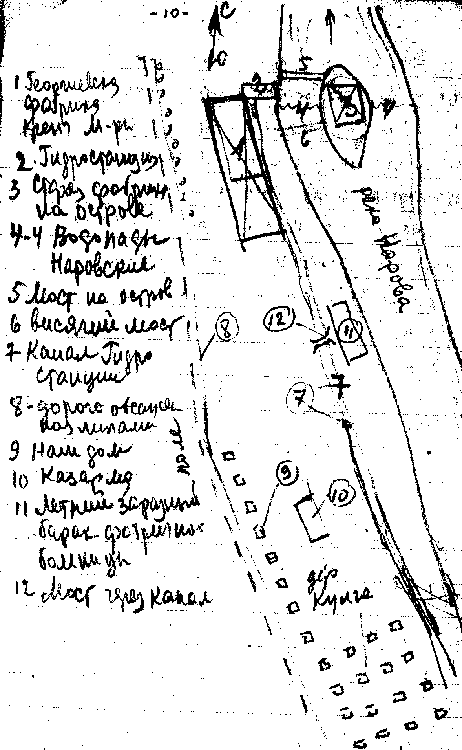 -10-
С
Ю
1 Георгиевская
фабрика
Кренг. М-ры
2. Гидростанция
3 Старая фабрика
на острове
4-4 Водопады
Нарвские
5 Мост на остров
6 висячий мост
7 Канал Гидро
станции
8-дорога обсажен
ная липами
9 Наш дом
10 Казарма
11 Летний заразный
барак фабричной
больницы
12 Мост через канал
2
5
4
3
6
река Нарова
12
11
8
7
7
поле
9
10
дер
Кулга